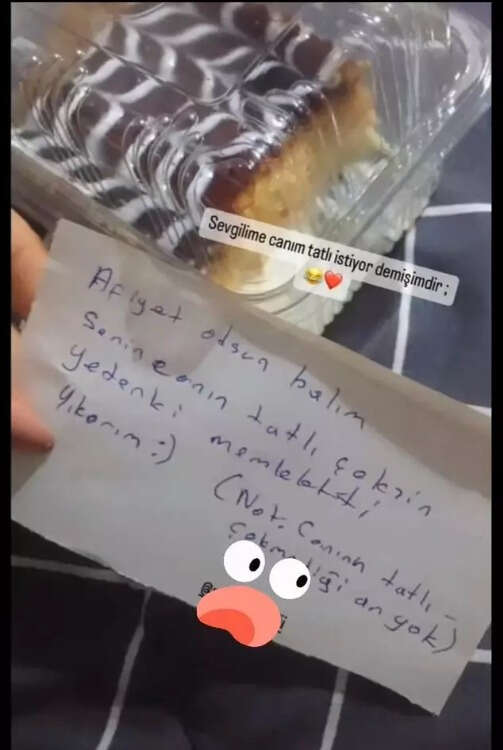 Sevgilime canım tatlı istiyor demişimdir ;
😂❤️
Afiyet olsun balım
Senin canın tatlı çeksin
yedenki memleketi
Yıkarım :)
(Not. Canının tatlı
çekmediği an yok)